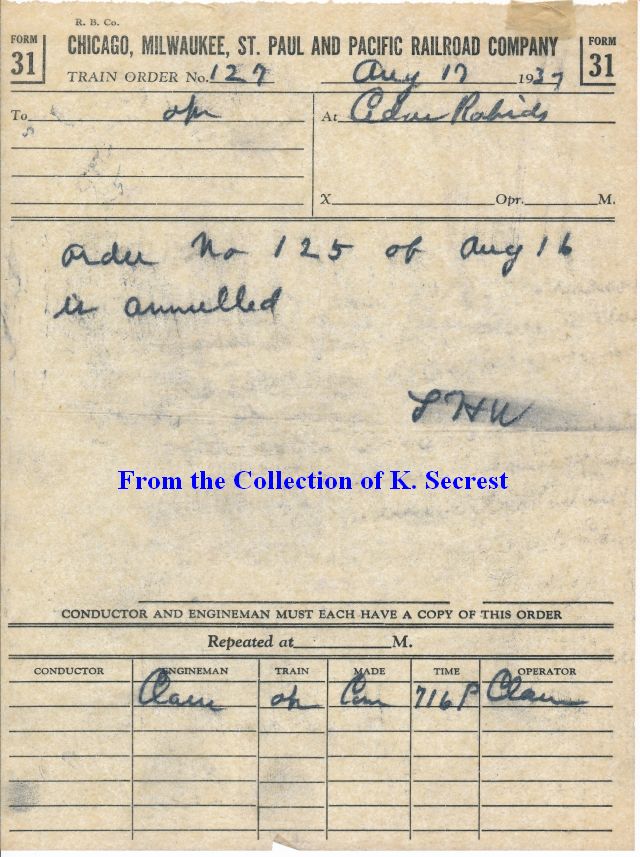 R. B. Co.
FORM 31
CHICAGO, MILWAUKEE, ST. PAUL AND PACIFIC RAILROAD COMPANY
FORM 31
TRAIN ORDER No. 127 Aug 17 1937
To opr At Cedar Rapids
X Opr. M.
order No 125 of Aug 16
is annulled
LHW
From the Collection of K. Secrest
CONDUCTOR AND ENGINEMAN MUST EACH HAVE A COPY OF THIS ORDER
Repeated at M.
CONDUCTOR ENGINEMAN TRAIN MADE TIME OPERATOR
opr Com 716 P